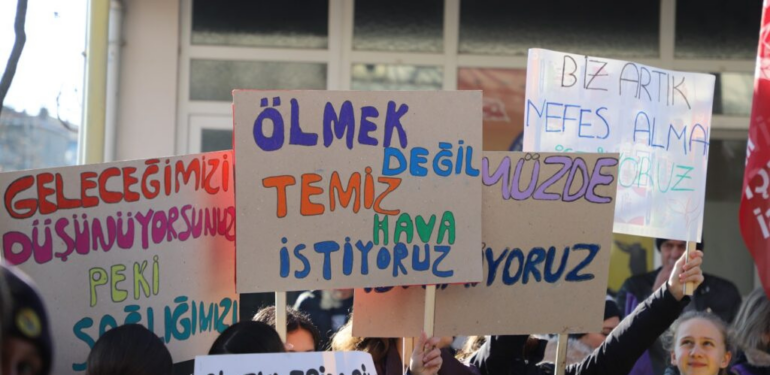 GELECEĞİMİZİ
DÜŞÜNÜYORSUNUZ
PEKİ
SAĞLIĞIMIZI
ÖLMEK
DEĞİL
TEMİZ
HAVA
İSTİYORUZ
YÜZDE
BİZ ARTIK
NEFES ALMAK
İSTİYORUZ